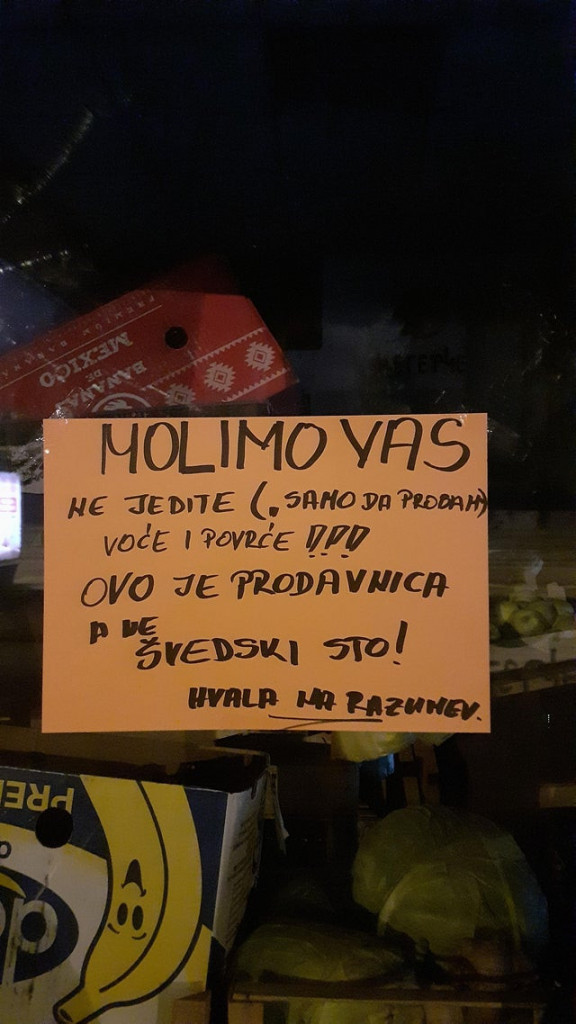 PREMIUM BANANAS
MEXICO
BANANAS
DE
MOLIMO VAS
NE JEDITE („SAMO DA PROBAM)
VOĆE I POVRĆE !!!
OVO JE PRODAVNICA
A NE
ŠVEDSKI STO!
HVALA NA RAZUMEV.
PRE